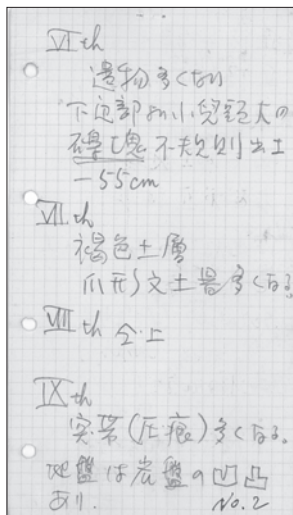 VIth
遺物多くない
下底部より小児頭大の
礫塊 不規則出土
－55cm
VIIth
褐色土層
爪形文土器多くなる。
VIIIth 仝上
IXth
突帯(圧痕)多くなる。
地盤は岩盤の凹凸
あり.
No.2